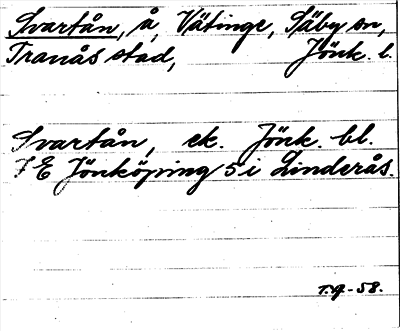 Svartån, å, Vätinge, Säby sn,
Tranås stad, Jönk. l.
Svartån, ek. Jönk. bl.
7 E Jönköping 5 i Linderås.
T.g. - 58.